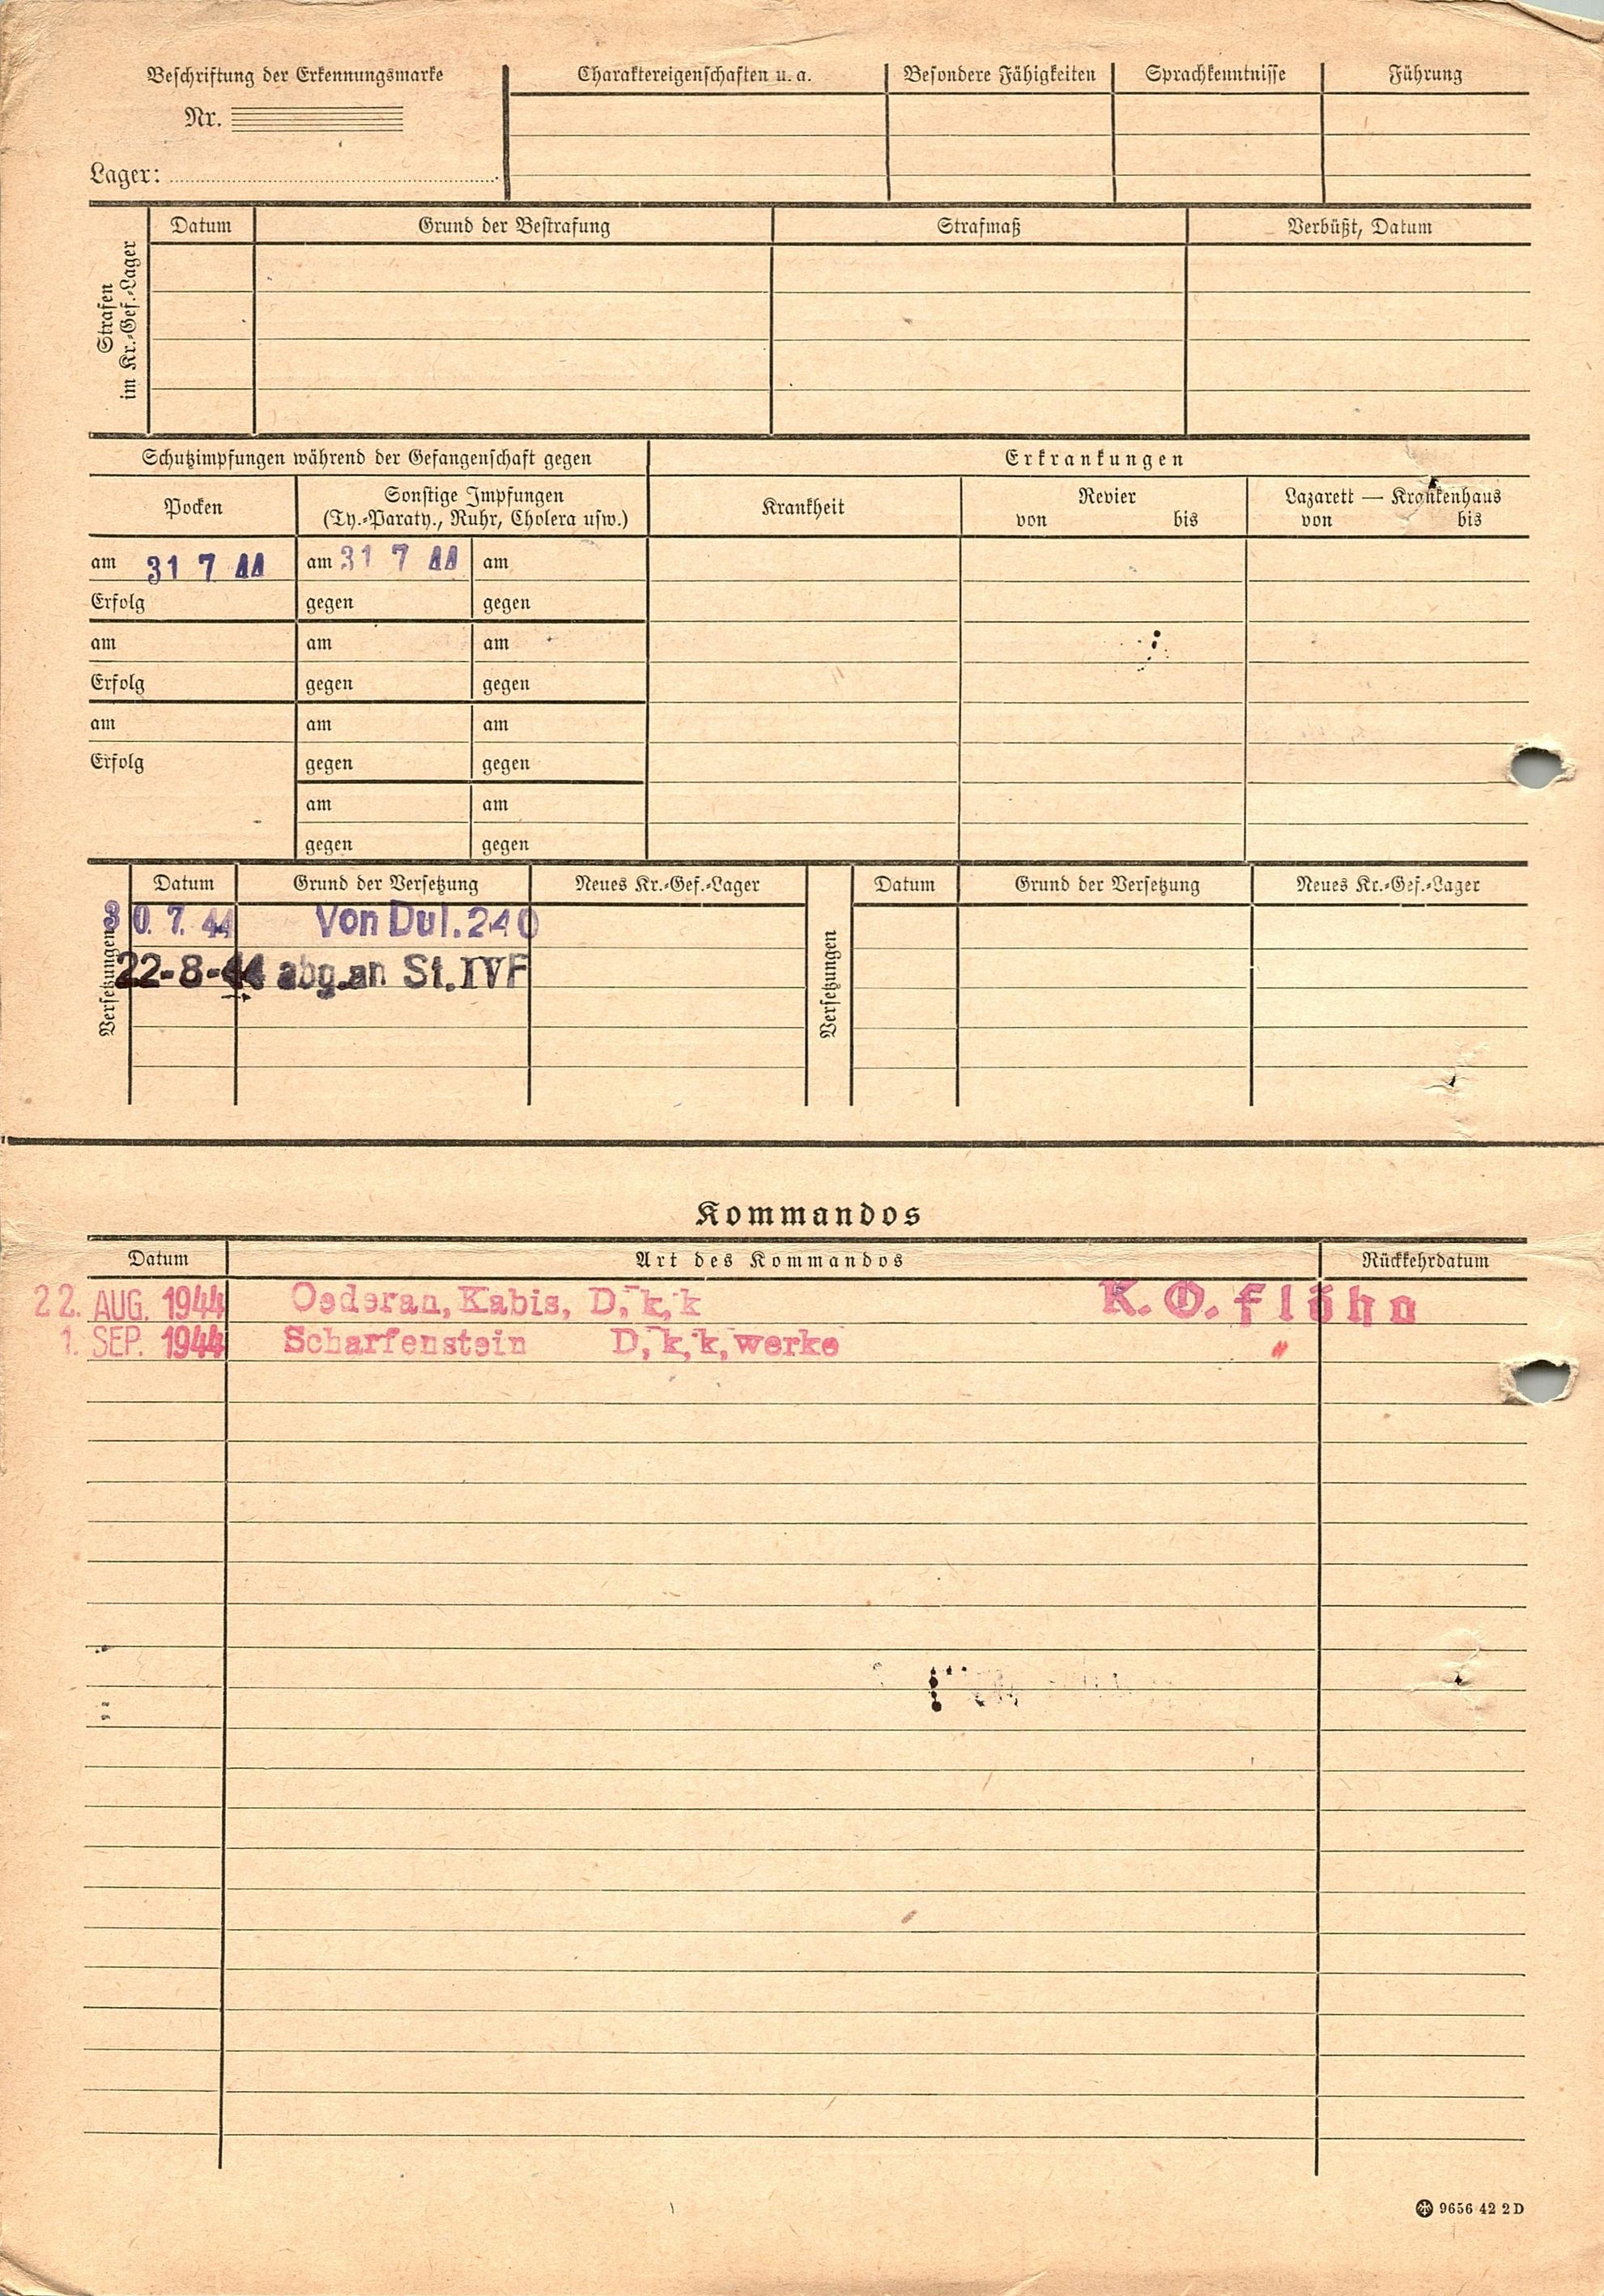 Beschriftung der Erkennungsmarke
Nr.
Lager:
Charaktereigenschaften u. a.
Besondere Fähigkeiten
Sprachkenntnisse
Führung
Strafen
im Kr.-Gef.-Lager
Datum
Grund der Bestrafung
Strafmaß
Verbüßt, Datum
Schutzimpfungen während der Gefangenschaft gegen
Erkrankungen
Pocken
Sonstige Impfungen
(Ty.-Paraty., Ruhr, Cholera usw.)
Krankheit
Revier
von bis
Lazarett — Krankenhaus
von bis
am 31 7 44 am 31 7 44 am
Erfolg gegen gegen
am am am
Erfolg gegen gegen
am am am
Erfolg gegen gegen
am am
gegen gegen
Versetzungen
Datum Grund der Versetzung Neues Kr.-Gef.-Lager
30. 7. 44 Von Dul. 240
22-8-44 abg. an St. IVF
Versetzungen
Datum Grund der Versetzung Neues Kr.-Gef.-Lager
Kommandos
Datum Art des Kommandos Rückkehrdatum
22. AUG. 1944 Oederan, Kabis, D, k, k K. O. flöha
1. SEP. 1944 Scharfenstein D, k, k, werke "
9656 42 2 D